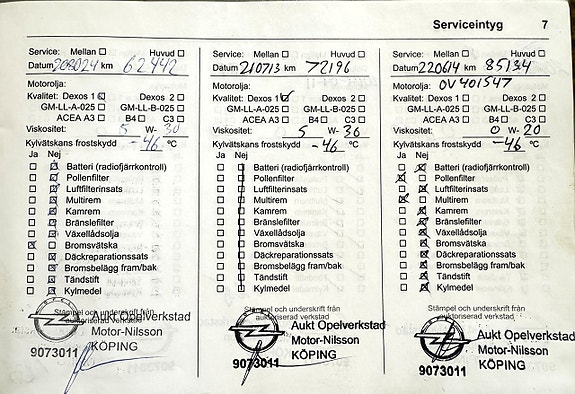 Serviceintyg 7
Service: Mellan Huvud
Datum 208024 km 62442
Motorolja:
Kvalitet: Dexos 1 Dexos 2
GM-LL-A-025 GM-LL-B-025
ACEA A3 B4 C3
Viskositet: 5 W- 30
Kylvätskans frostskydd -46 °C
Ja Nej
Batteri (radiofjärrkontroll)
Pollenfilter
Luftfilterinsats
Multirem
Kamrem
Bränslefilter
Växellådsolja
Bromsvätska
Däckreparationssats
Bromsbelägg fram/bak
Tändstift
Kylmedel
Stämpel och underskrift från
auktoriserad verkstad
Aukt Opelverkstad
Motor-Nilsson
9073011 KÖPING
Service: Mellan Huvud
Datum 210713 km 72196
Motorolja:
Kvalitet: Dexos 1 Dexos 2
GM-LL-A-025 GM-LL-B-025
ACEA A3 B4 C3
Viskositet: 5 W- 30
Kylvätskans frostskydd -46 °C
Ja Nej
Batteri (radiofjärrkontroll)
Pollenfilter
Luftfilterinsats
Multirem
Kamrem
Bränslefilter
Växellådsolja
Bromsvätska
Däckreparationssats
Bromsbelägg fram/bak
Tändstift
Kylmedel
Stämpel och underskrift från
auktoriserad verkstad
Aukt Opelverkstad
Motor-Nilsson
9073011 KÖPING
Service: Mellan Huvud
Datum 220614 km 85134
Motorolja: OV401547
Kvalitet: Dexos 1 Dexos 2
GM-LL-A-025 GM-LL-B-025
ACEA A3 B4 C3
Viskositet: 0 W- 20
Kylvätskans frostskydd -46 °C
Ja Nej
Batteri (radiofjärrkontroll)
Pollenfilter
Luftfilterinsats
Multirem
Kamrem
Bränslefilter
Växellådsolja
Bromsvätska
Däckreparationssats
Bromsbelägg fram/bak
Tändstift
Kylmedel
Stämpel och underskrift från
auktoriserad verkstad
Aukt Opelverkstad
Motor-Nilsson
9073011 KÖPING